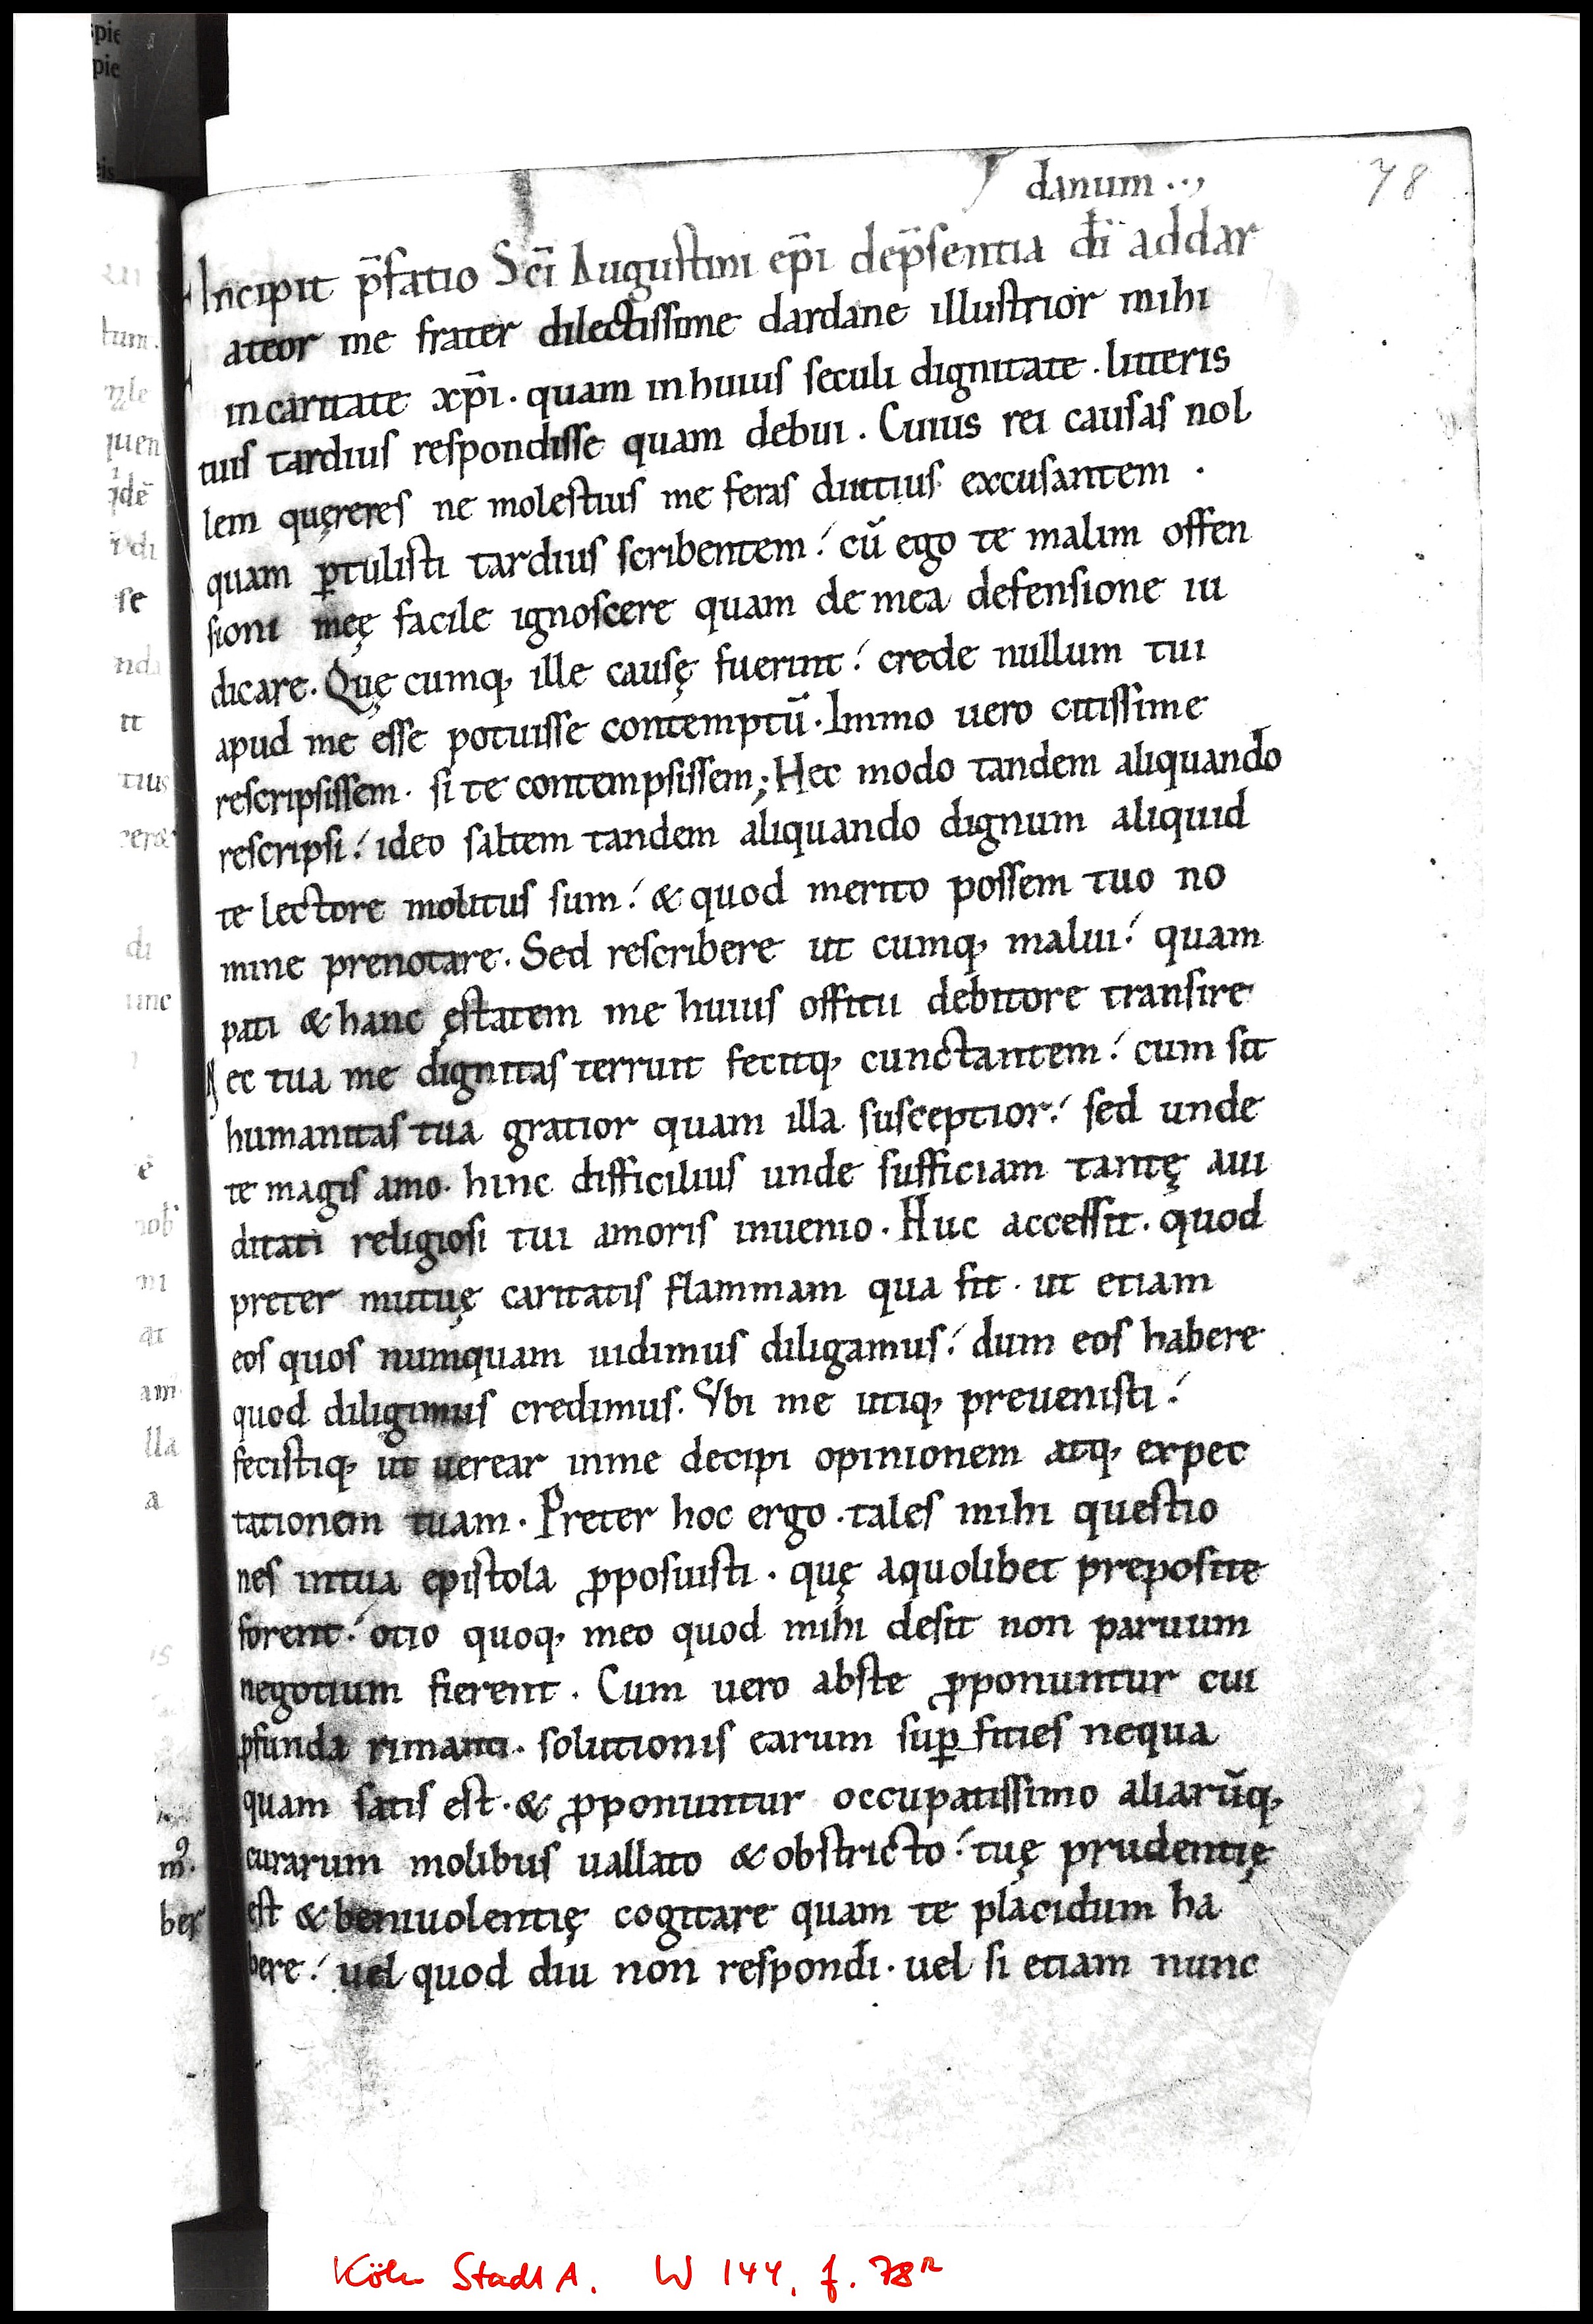 danum..,
78
Incipit p̄fatio Sc̄i Augustini ep̄i dep̄sentia dī addar
ateor me frater dilectissime dardane illustrior mihi
in caritate xp̄i. quam in huius seculi dignitate. litteris
tuis tardius respondisse quam debui. Cuius rei causas nol
lem quęreres ne molestius me feras diutius excusantem.
quam ꝑtulisti tardius scribentem! cū ego te malim offen
sioni meę facile ignoscere quam de mea defensione iu
dicare. Quę cumq, ille causę fuerint! crede nullum tui
apud me esse potuisse contemptū. Immo uero citissime
rescripsissem. si te contempsissem; Hec modo tandem aliquando
rescripsi! ideo saltem tandem aliquando dignum aliquid
te lectore molitus sum! & quod merito possem tuo no
mine prenotare. Sed rescribere ut cumq, malui! quam
pati & hanc ęstatem me huius offitii debitore transire
N ec tua me dignitas terruit fecitq, cunctantem! cum sit
humanitas tua gratior quam illa susceptior! sed unde
te magis amo. hinc difficilius unde sufficiam tantę aui
ditati religiosi tui amoris inuenio. Huc accessit. quod
preter mutuę caritatis flammam qua fit. ut etiam
eos quos numquam uidimus diligamus! dum eos habere
quod diligimus credimus. Vbi me utiq, preuenisti!
fecistiq, ut uerear inme decipi opinionem atq, expec
tationem tuam. Preter hoc ergo. tales mihi questio
nes intua epistola ꝓposuisti. quę aquolibet preposite
forent! otio quoq, meo quod mihi desit non paruum
negotium fierent. Cum uero abste ꝓponuntur cui
ꝓfunda rimanti. solutionis earum suꝑfities nequa
quam satis est. & ꝓponuntur occupatissimo aliarūq,
curarum molibus uallato & obstricto! tuę prudentię
est & beniuolentię cogitare quam te placidum ha
bere! uel quod diu non respondi. uel si etiam nunc
Köln StadtA. W 144, f. 78r